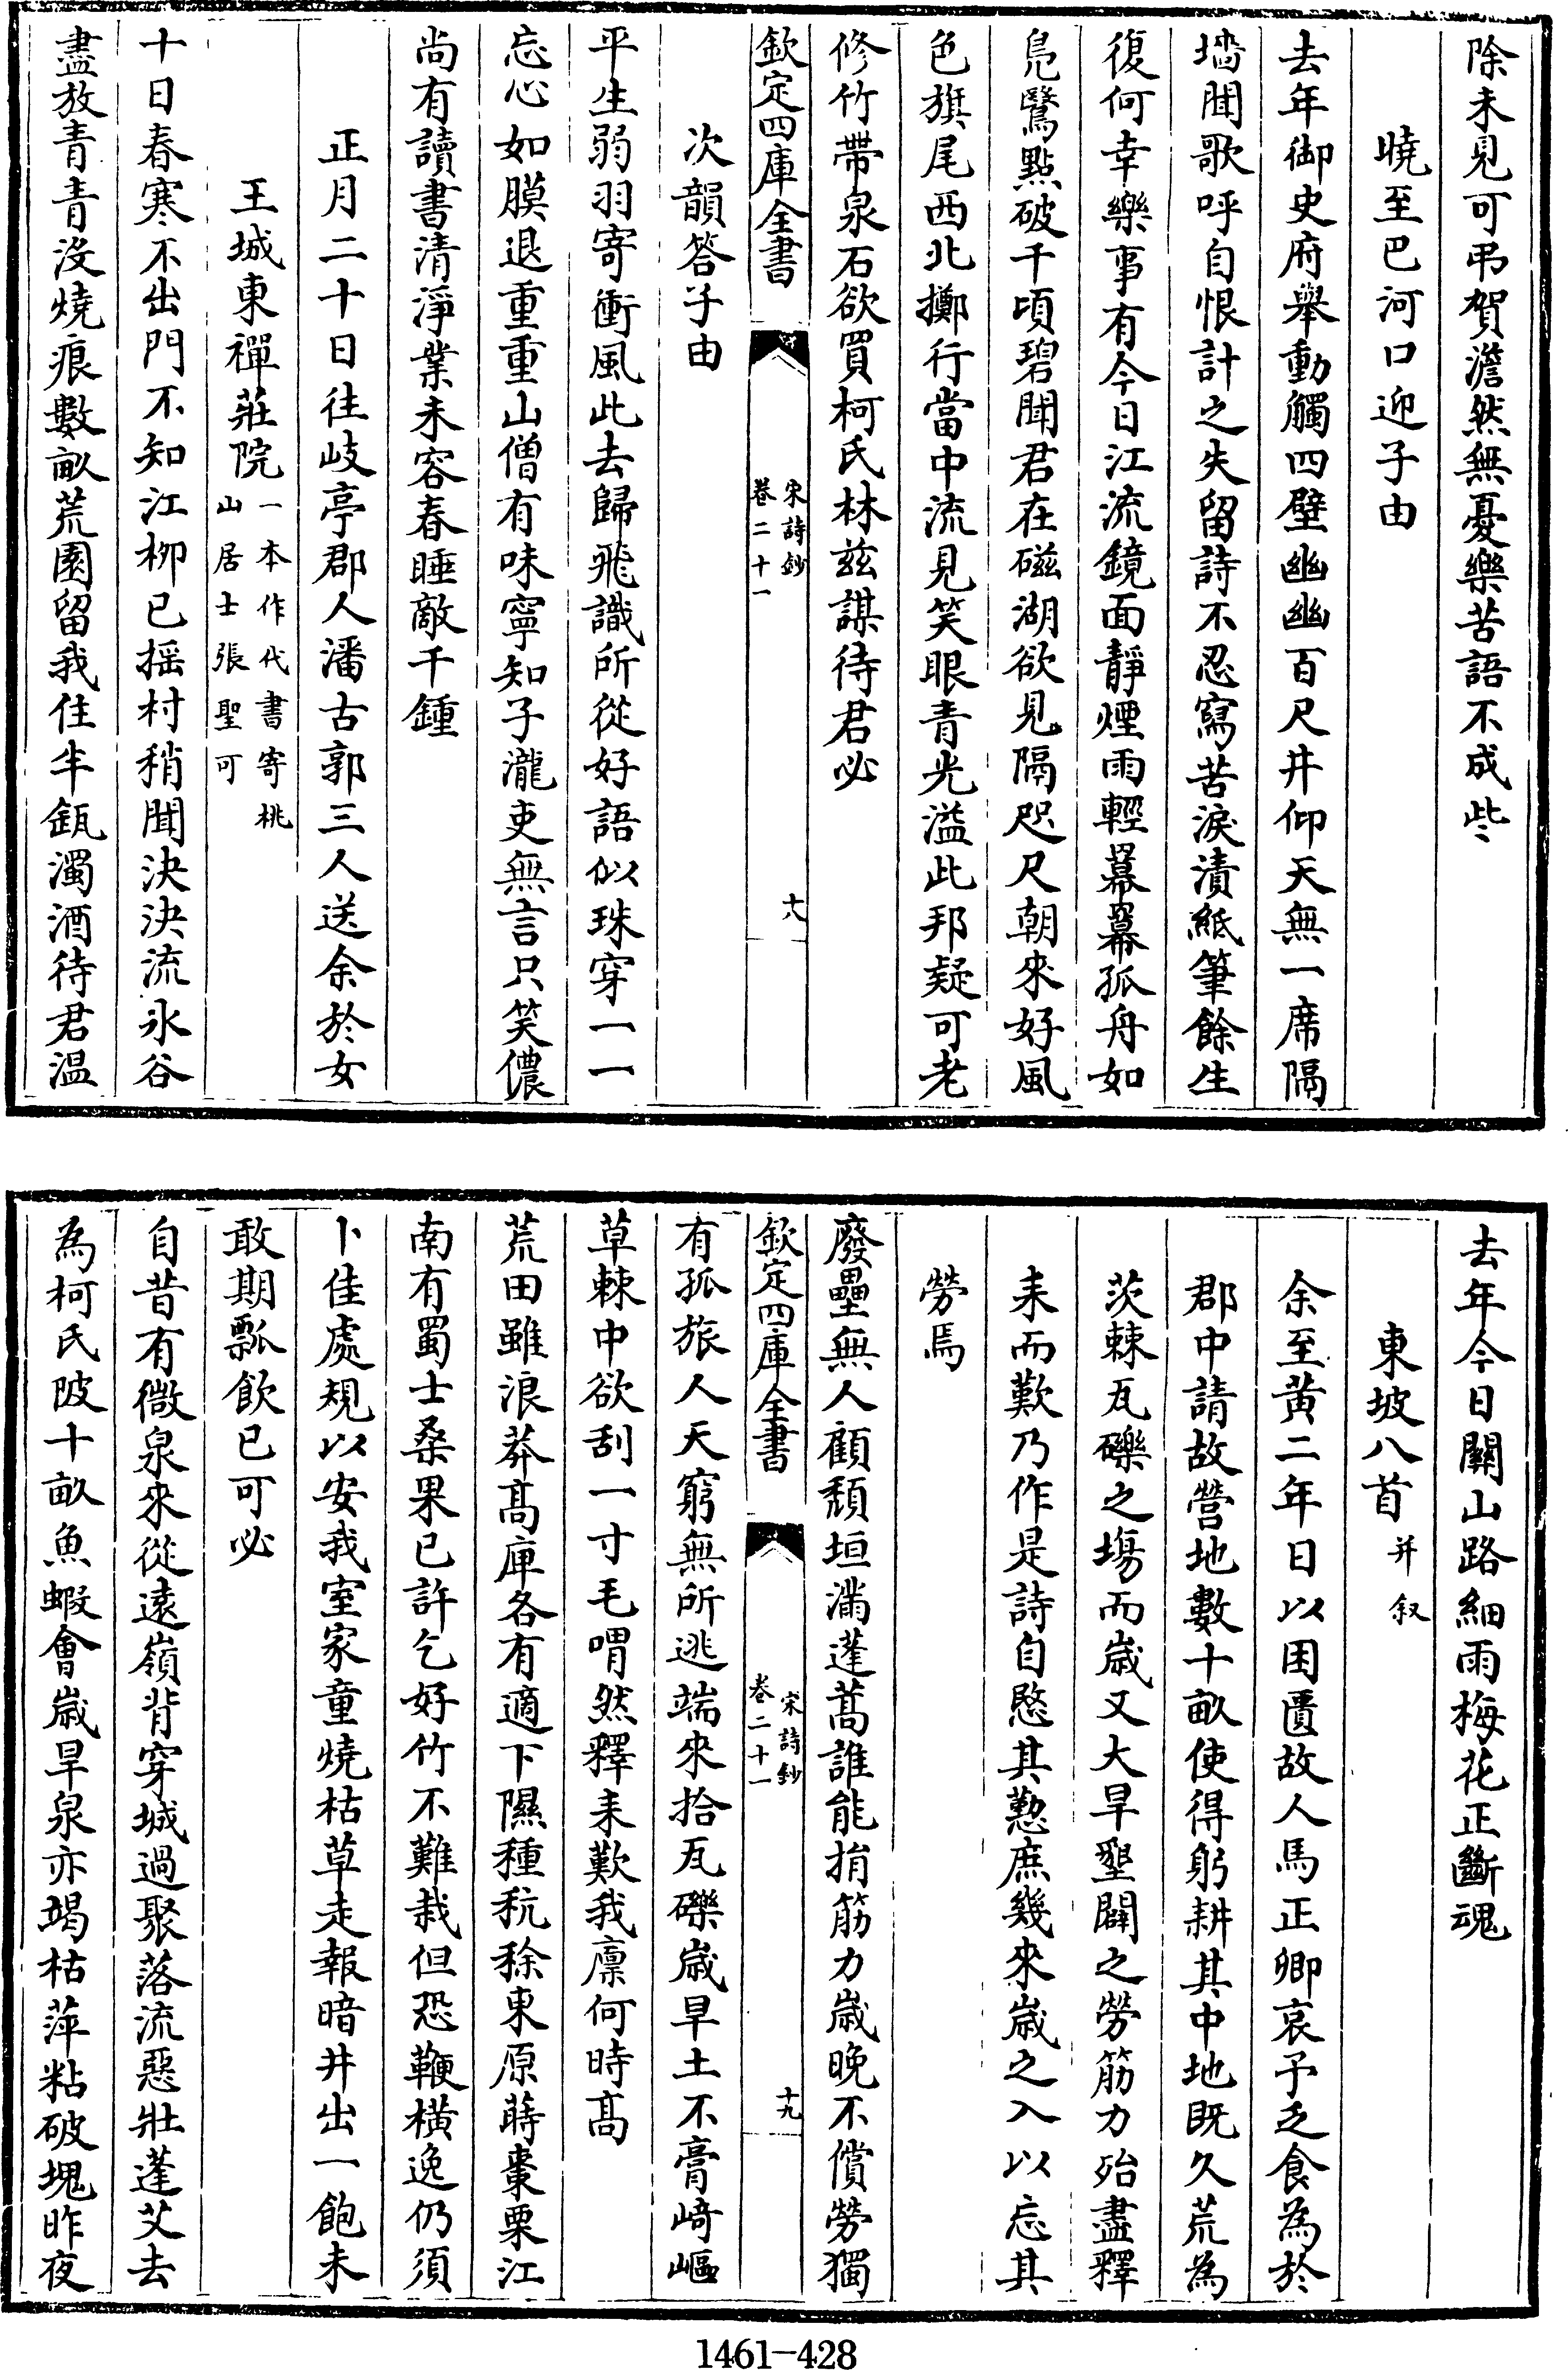 除未見可弔賀澹然無憂樂苦語不成些
曉至巴河口迎子由
去年御史府舉動觸四壁幽幽百尺井仰天無一席隔
墻聞歌呼自恨計之失留詩不忍寫苦淚漬紙筆餘生
復何幸樂事有今日江流鏡面靜煙雨輕冪冪孤舟如
鳧鷖點破千頃碧聞君在磁湖欲見隔咫尺朝來好風
色旗尾西北擲行當中流見笑眼青光溢此邦疑可老
修竹帶泉石欲買柯氏林兹謀待君必
欽定四庫全書
宋詩鈔
卷二十一
十八
次韻答子由
平生弱羽寄衝風此去歸飛識所從好語似珠穿一一
忘心如膜退重重山僧有味寧知子瀧吏無言只笑儂
尚有讀書清淨業未容春睡敵千鍾
正月二十日往岐亭郡人潘古郭三人送余於女
王城東禪莊院
一本作代書寄桃
山居士張聖可
十日春寒不出門不知江栁已揺村稍聞決決流氷谷
盡放青青没燒痕數畝荒園留我住半缻濁酒待君温
去年今日關山路細雨梅花正斷魂
東坡八首
并叙
余至黄二年日以困匱故人馬正卿哀予乏食為於
郡中請故營地數十畝使得躬耕其中地既久荒為
茨棘瓦礫之塲而歳又大旱墾闢之勞筋力殆盡釋
耒而歎乃作是詩自愍其懃庶幾來歳之入以忘其
勞焉
廢壘無人顧頽垣滿蓬蒿誰能捐筋力歳晩不償勞獨
欽定四庫全書
宋詩鈔
卷二十一
十九
有孤旅人天窮無所逃端來拾瓦礫歳旱土不膏崎嶇
草棘中欲刮一寸毛喟然釋耒歎我廪何時髙
荒田雖浪莽髙庳各有適下隰種秔稌東原蒔棗栗江
南有蜀士桑果已許乞好竹不難栽但恐鞭横逸仍須
卜佳處規以安我室家童燒枯草走報暗井出一飽未
敢期瓢飲已可必
自昔有微泉來從遠嶺背穿城過聚落流惡壯蓬艾去
為柯氏陂十畝魚蝦會歳旱泉亦竭枯萍粘破塊昨夜
1461-428